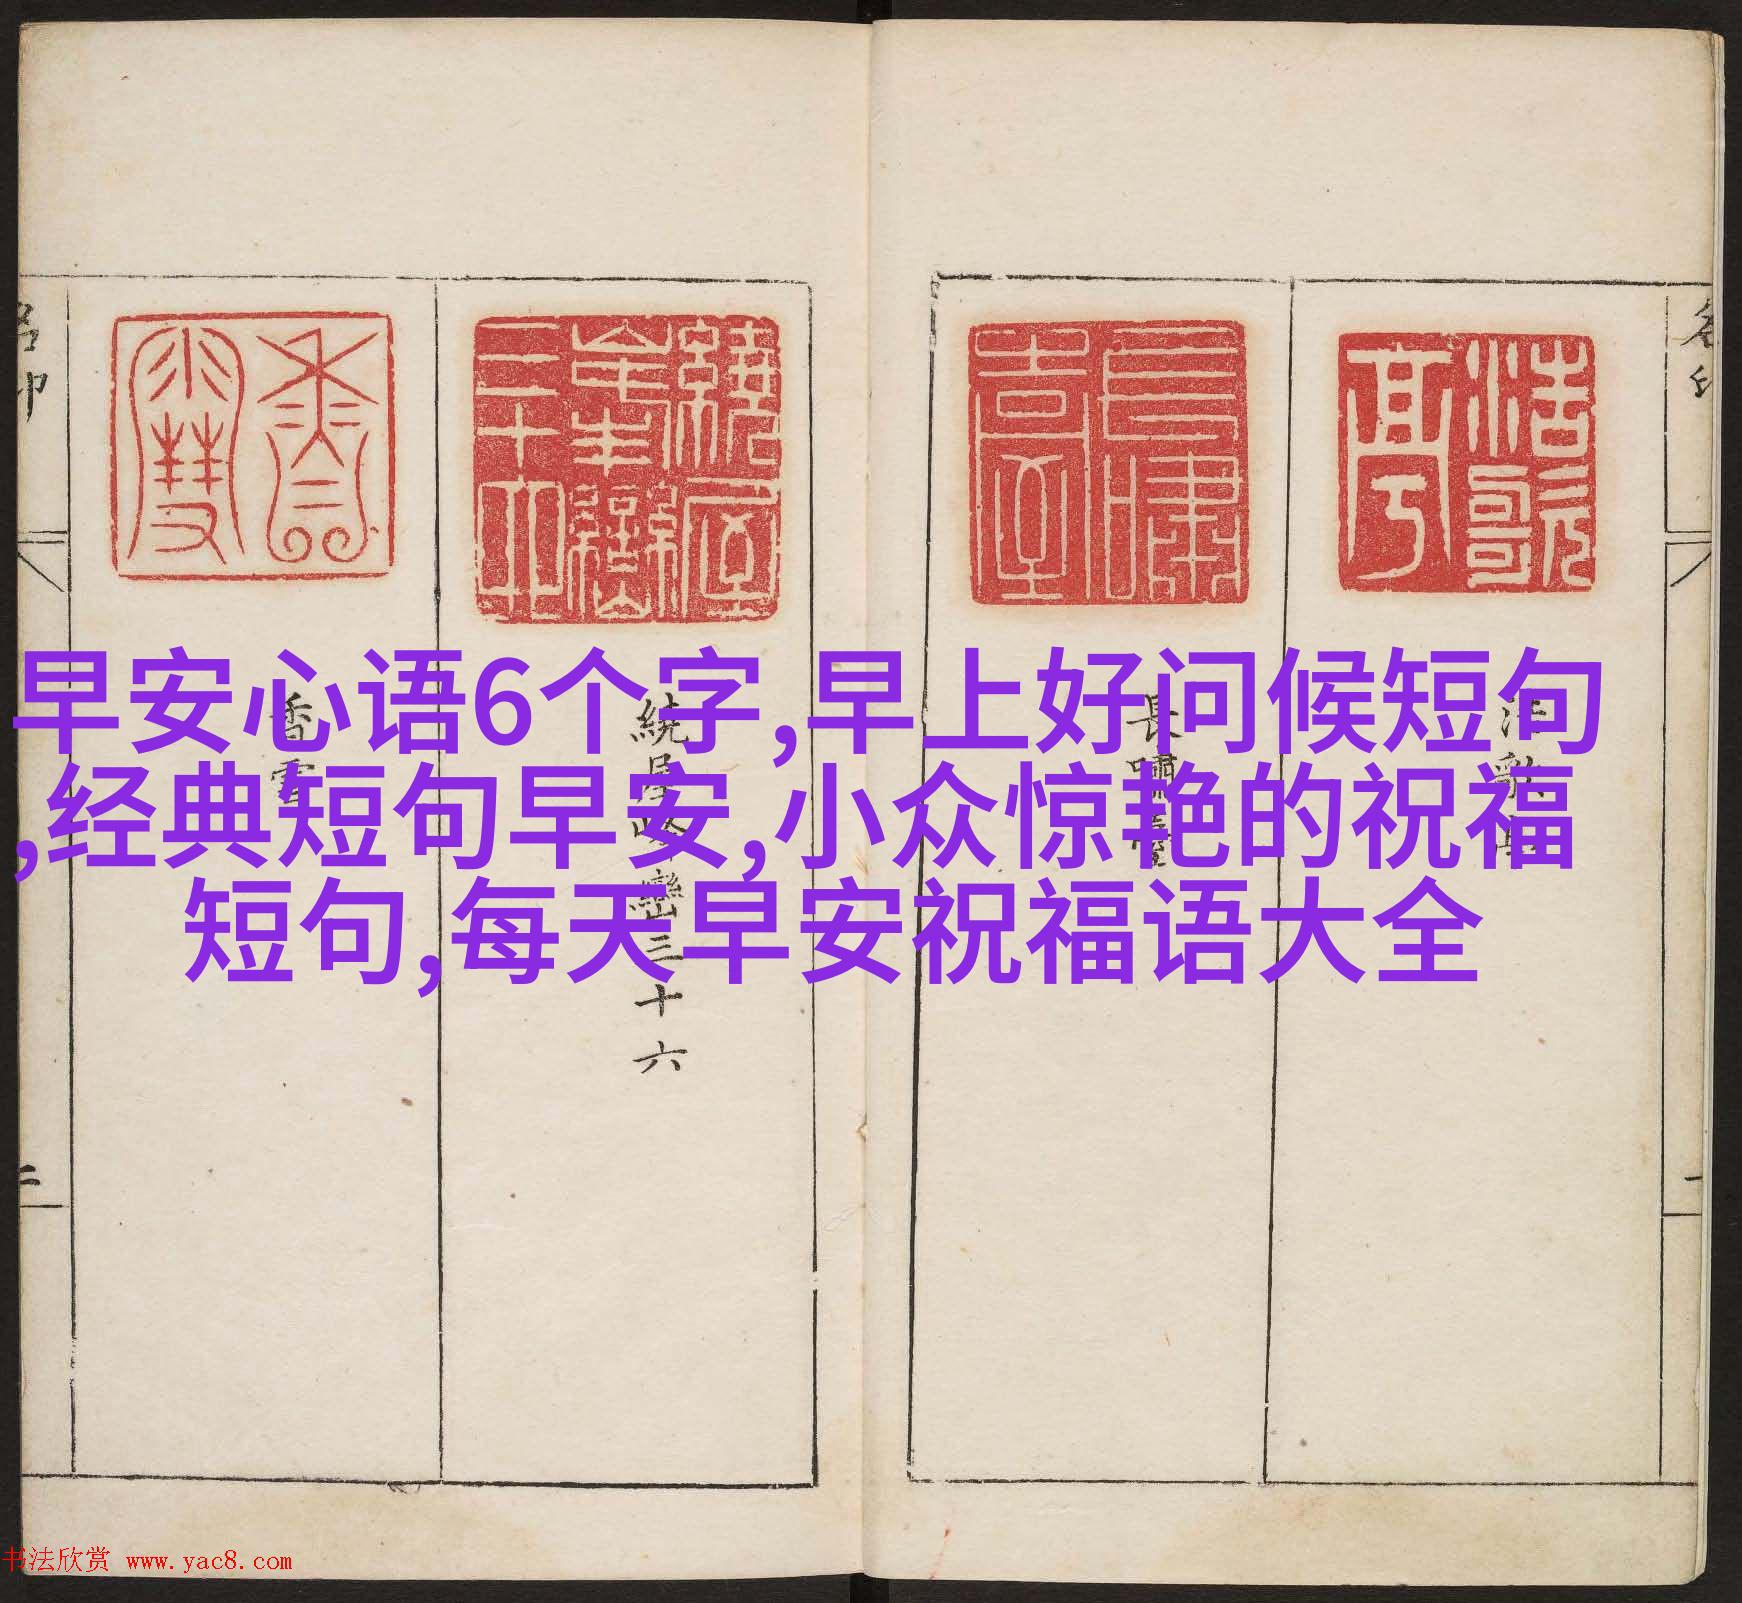 早安心语6个字,早上好问候短句
,经典短句早安,小众惊艳的祝福
短句,每天早安祝福语大全
浩歌亭
長嘯臺
繞屋峰巒三十六
香雪
二
书法欣赏 www.yac8.com